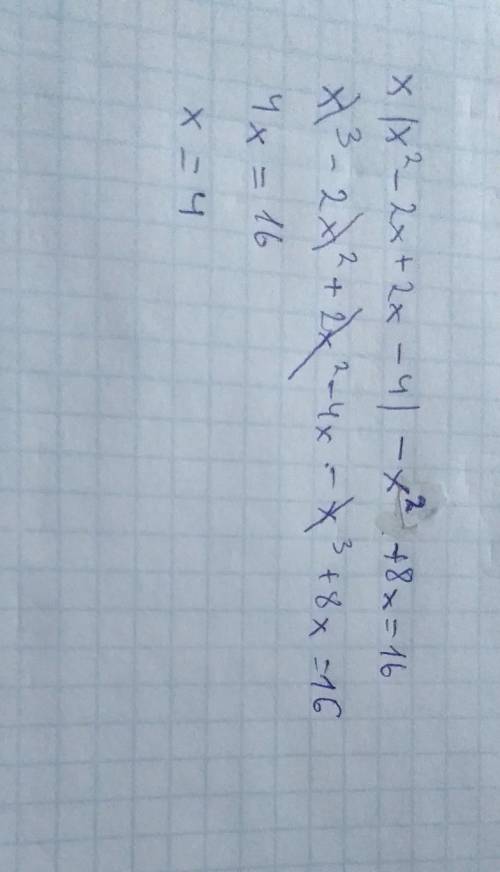 x(x² - 2x + 2x - 4) - x² + 8x = 16
x³ - 2x² + 2x² - 4x - x³ + 8x = 16
4x = 16
x = 4